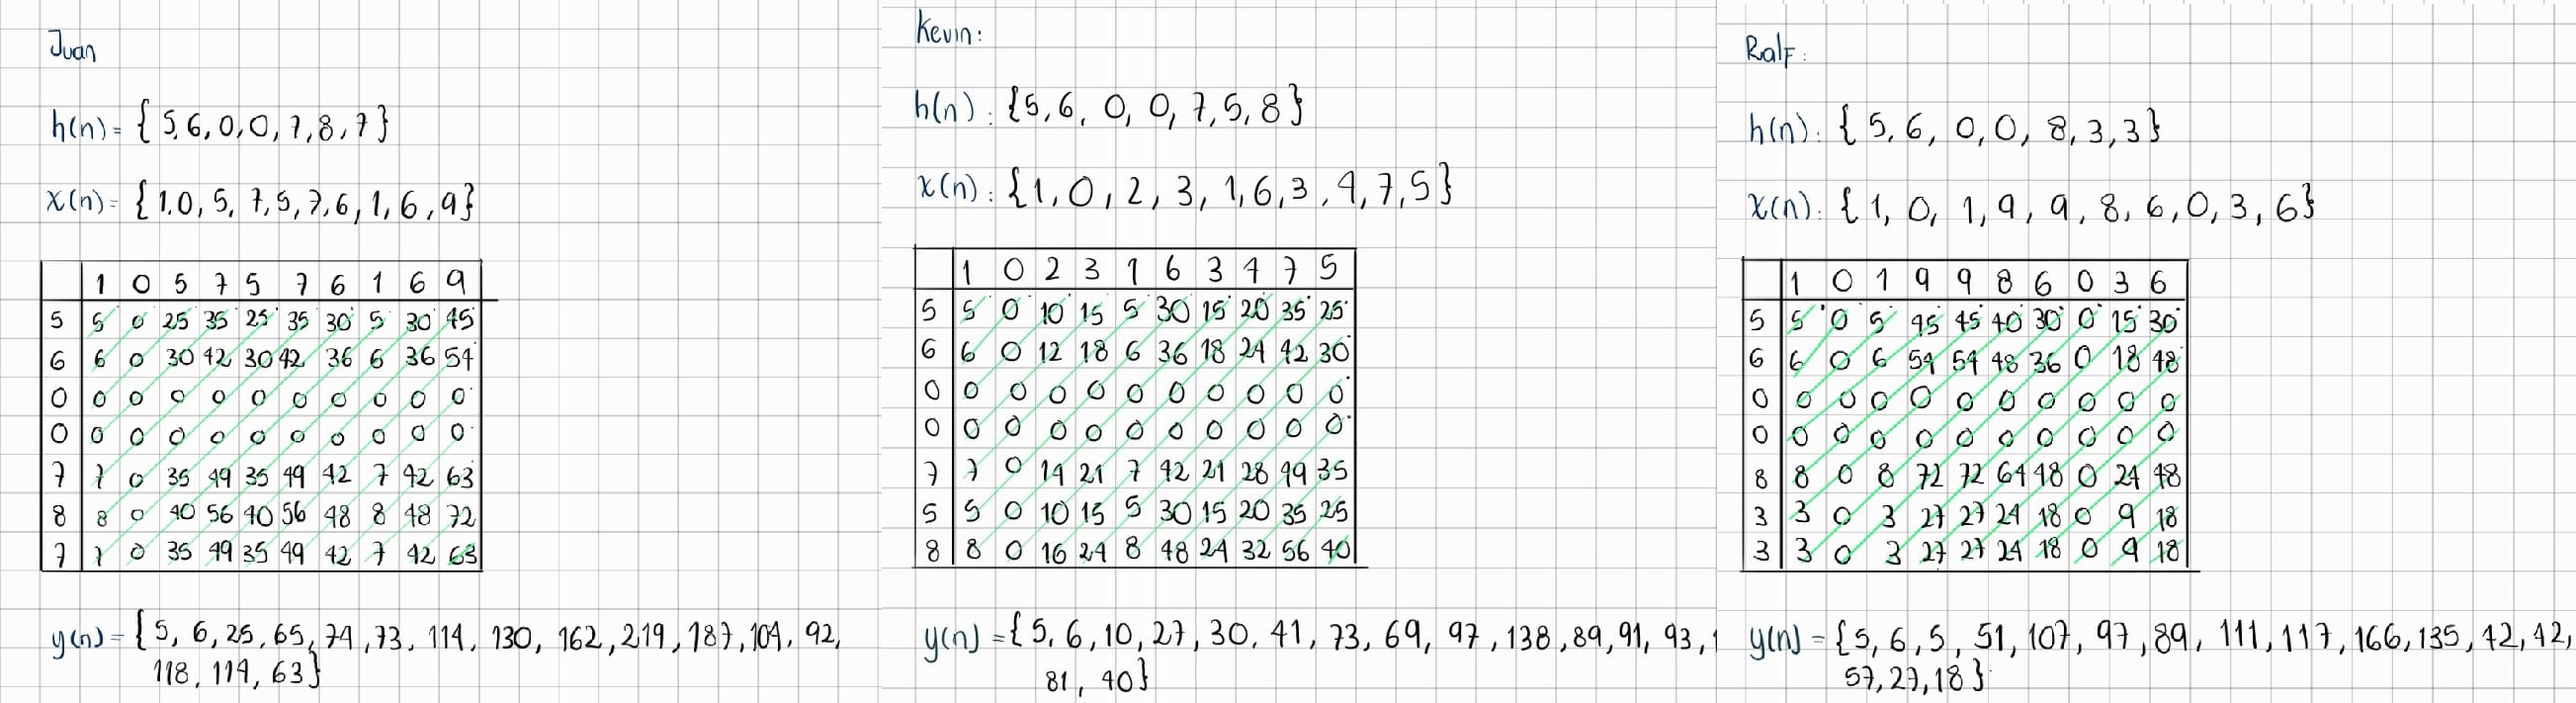 Juan
h(n) = { 5,6,0,0,7,8,7 }
x(n) = { 1,0,5,7,5,7,6,1,6,9 }
1 0 5 7 5 7 6 1 6 9
5 5 0 25 35 25 35 30 5 30 45
6 6 0 30 42 30 42 36 6 36 54
0 0 0 0 0 0 0 0 0 0 0
0 0 0 0 0 0 0 0 0 0 0
7 7 0 35 49 35 49 42 7 42 63
8 8 0 40 56 40 56 48 8 48 72
7 7 0 35 49 35 49 42 7 42 63
y(n) = { 5, 6, 25, 65, 74, 73, 114, 130, 162, 219, 187, 104, 92,
118, 114, 63 }
Kevin:
h(n) : { 5,6, 0, 0, 7, 5, 8 }
x(n) : { 1, 0, 2, 3, 1, 6, 3, 4, 7, 5 }
1 0 2 3 1 6 3 4 7 5
5 5 0 10 15 5 30 15 20 35 25
6 6 0 12 18 6 36 18 24 42 30
0 0 0 0 0 0 0 0 0 0 0
0 0 0 0 0 0 0 0 0 0 0
7 7 0 14 21 7 42 21 28 49 35
5 5 0 10 15 5 30 15 20 35 25
8 8 0 16 24 8 48 24 32 56 40
y(n) = { 5, 6, 10, 27, 30, 41, 73, 69, 97, 138, 89, 91, 93, 1
81, 40 }
Ralf:
h(n) : { 5, 6, 0, 0, 8, 3, 3 }
x(n) : { 1, 0, 1, 9, 9, 8, 6, 0, 3, 6 }
1 0 1 9 9 8 6 0 3 6
5 5 0 5 45 45 40 30 0 15 30
6 6 0 6 54 54 48 36 0 18 48
0 0 0 0 0 0 0 0 0 0 0
0 0 0 0 0 0 0 0 0 0 0
8 8 0 8 72 72 64 48 0 24 48
3 3 0 3 27 27 24 18 0 9 18
3 3 0 3 27 27 24 18 0 9 18
y(n) = { 5, 6, 5, 51, 107, 97, 89, 111, 117, 166, 135, 42, 42,
57, 27, 18 }